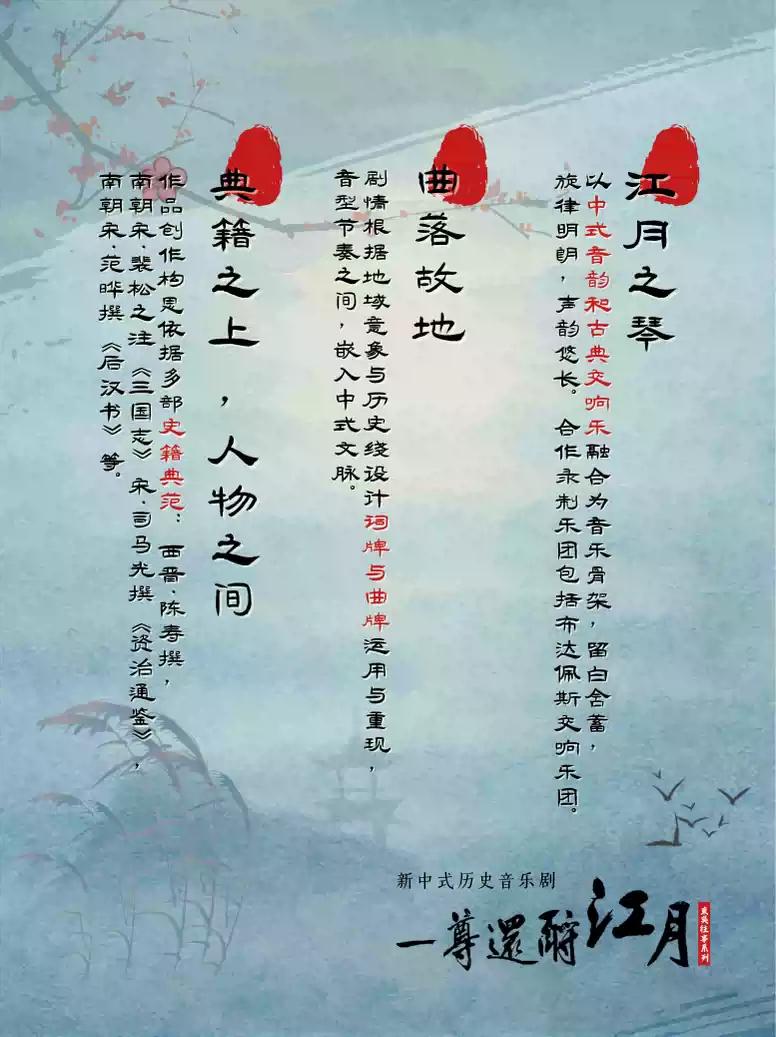 江月之琴
以中式音韵和古典交响乐融合为音乐骨架，留白含蓄，
旋律明朗，声韵悠长。合作录制乐团包括布达佩斯交响乐团。
曲落故地
剧情根据地域意象与历史线设计词牌与曲牌运用与重现，
音型节奏之间，嵌入中式文脉。
典籍之上，人物之间
作品创作构思依据多部史籍典范：西晋·陈寿撰，
南朝宋·裴松之注《三国志》宋·司马光撰《资治通鉴》，
南朝宋·范晔撰《后汉书》等。
新中式历史音乐剧
一尊還酹江月